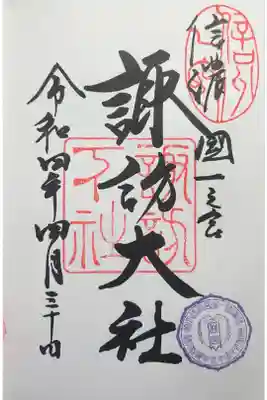 信濃國一之宮
諏訪大社
令和四年四月三十日
諏訪下社